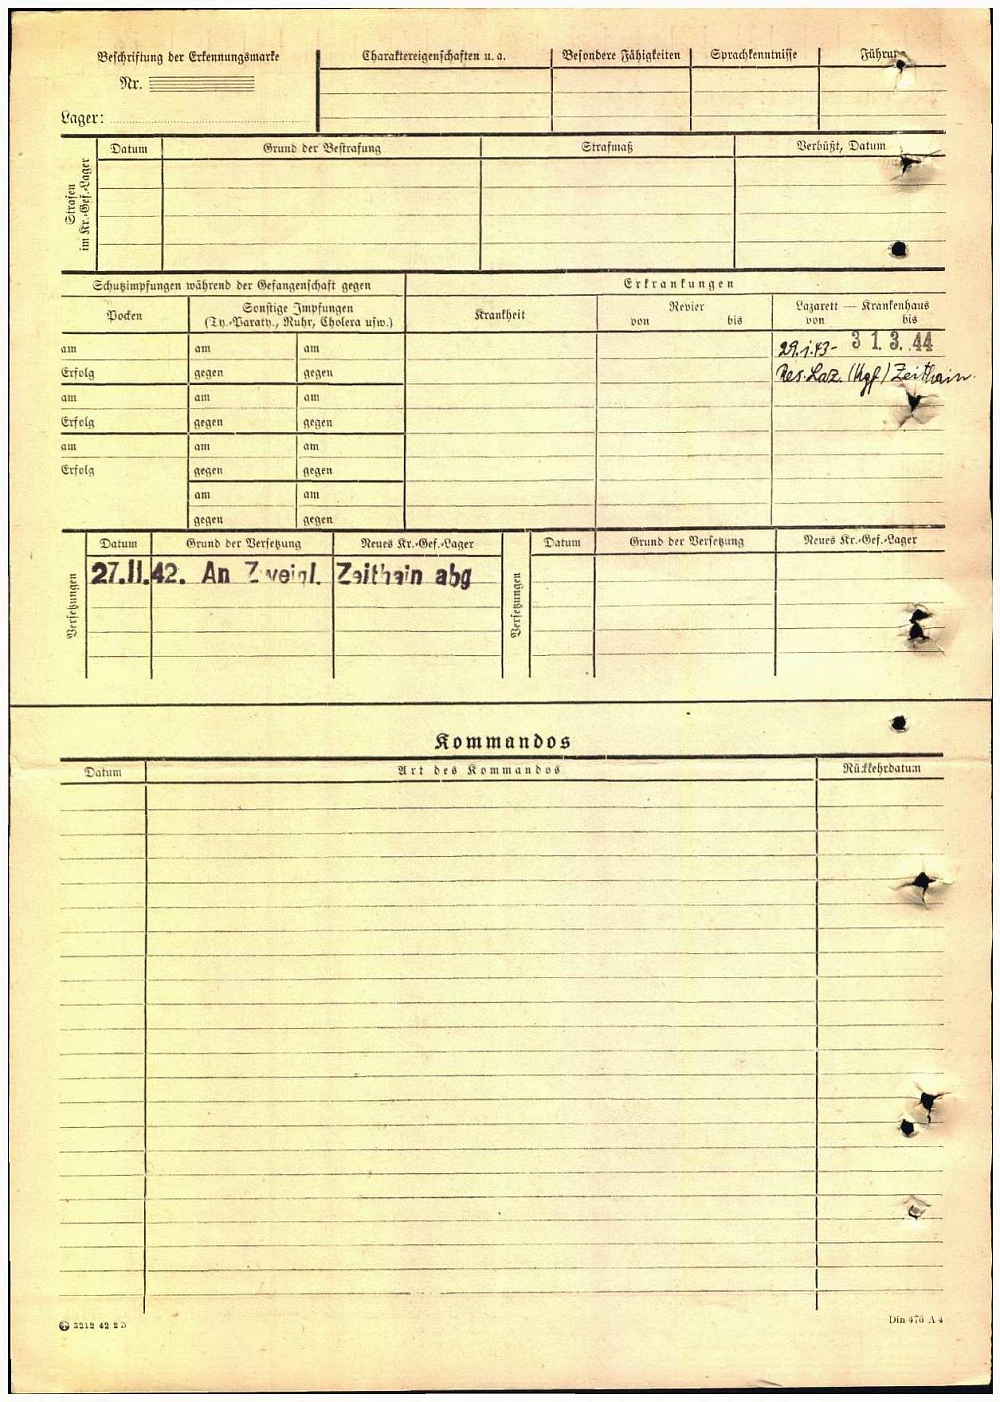 Beschriftung der Erkennungsmarke
Nr.
Lager:
Charaktereigenschaften u. a.
Besondere Fähigkeiten
Sprachkenntnisse
Führung
Strafen
im Kr.-Gef.-Lager
Datum
Grund der Bestrafung
Strafmaß
Verbüßt, Datum
Schutzimpfungen während der Gefangenschaft gegen
Erkrankungen
Pocken
Sonstige Impfungen
(Ty.-Paraty., Ruhr, Cholera usw.)
Krankheit
Revier
von bis
Lazarett — Krankenhaus
von bis
am am am
29.1.43- 31.3.44
Erfolg gegen gegen
Res. Laz. (Kgf) Zeithain
am am am
Erfolg gegen gegen
am am am
Erfolg gegen gegen
am am
gegen gegen
Versetzungen
Datum Grund der Versetzung Neues Kr.-Gef.-Lager
27.11.42. An Zweigl. Zeithain abg
Versetzungen
Datum Grund der Versetzung Neues Kr.-Gef.-Lager
Kommandos
Datum Art des Kommandos Rückkehrdatum
5212 42 2 D
Din 476 A 4